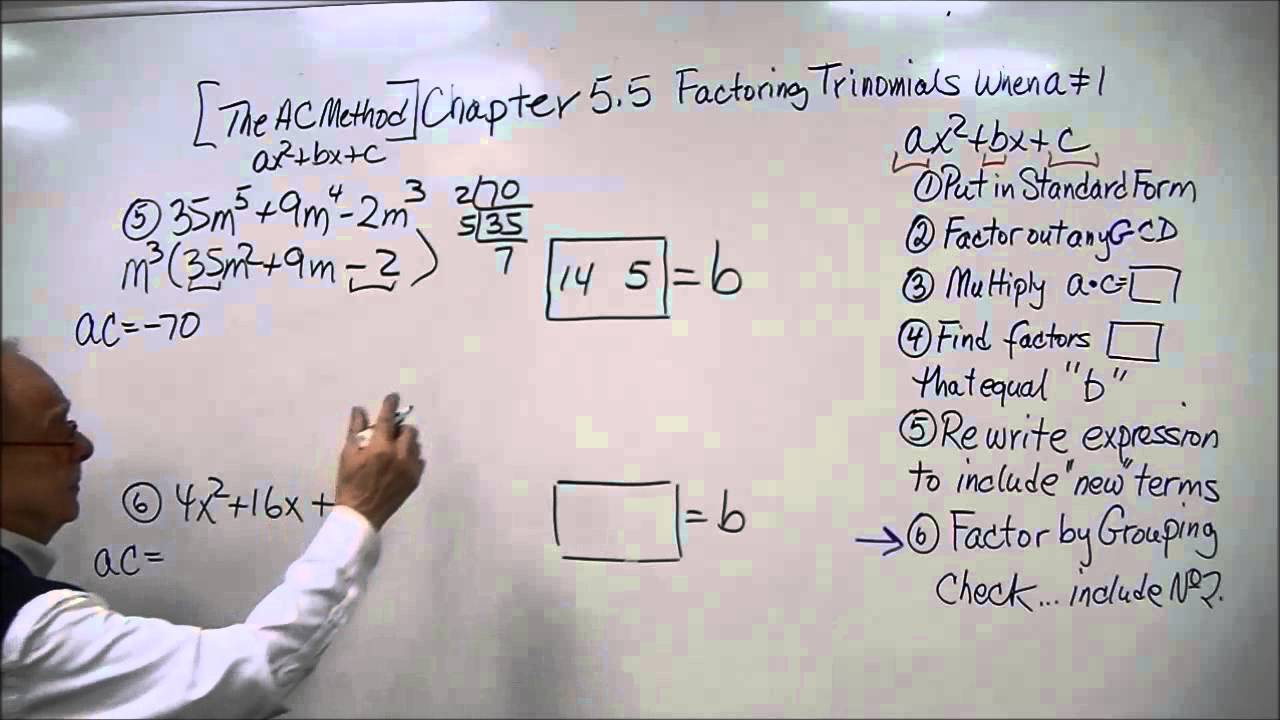 [The AC Method] Chapter 5.5 Factoring Trinomials when a ≠ 1
ax²+bx+c
⑤ 35m⁵+9m⁴-2m³
m³(35m²+9m-2)
ac=-70
2 70
5 35
7
14 5 = b
⑥ 4x²+16x+
ac=
= b
ax²+bx+c
① Put in Standard Form
② Factor out any GCD
③ Multiply a•c=
④ Find factors
that equal "b"
⑤ Rewrite expression
to include "new" terms
→ ⑥ Factor by Grouping
Check... include Nº2.